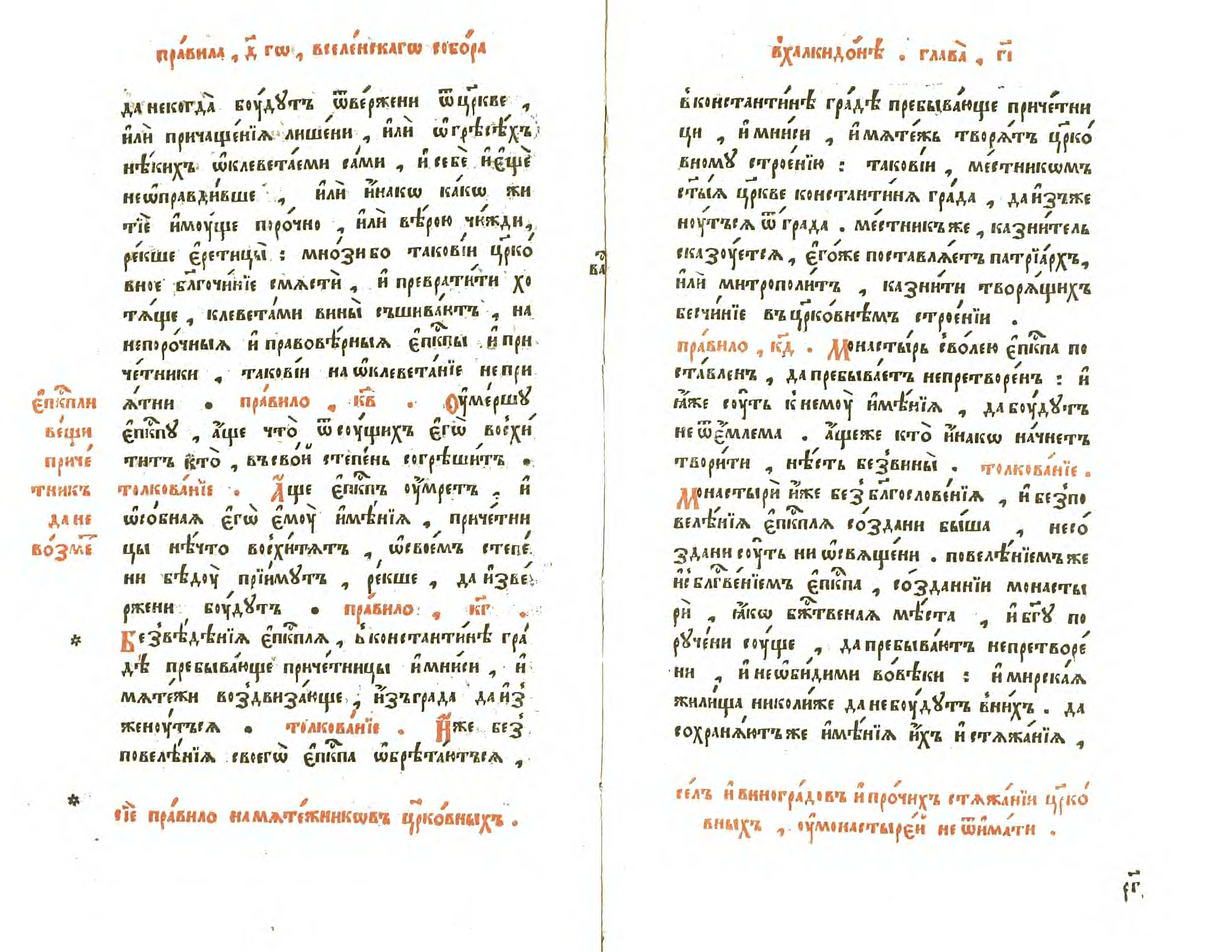 пра́вила , д҃ гѡ , вселе́нскагѡ собо́ра
да некогда̀ боу́дꙋтъ ѿве́ржени ѿ цр҃кве ,
и҆лѝ причаще́нїѧ лише́ни , и҆лѝ ѡ҆ грѣсѣ́хъ
нѣ́кихъ ѡ҆клевета́еми са́ми , и҆ себѐ и҆ є҆щѐ
неѡ҆правди́вше , и҆лѝ и҆на́кѡ ка́кѡ жи
тїѐ и҆мꙋ́ще поро́чно , и҆лѝ вѣ́рою чю́жди ,
ре́кше є҆ретицы̀ : мно́зи бо такові́и цр҃ко́
вное бл҃гочи́нїе смѧстѝ , и҆ преврати́ти хо
тѧ́ще , клевета́ми вины̀ съшива́ютъ , на
непоро́чныѧ и҆ правовѣ́рныѧ є҆пⷭ҇кпы и҆ при
че́тники , такові́и на ѡ҆клевета́нїе непри
ѧ́тни . пра́вило , кв҃ . Оу҆ме́ршꙋ
є҆пⷭ҇кпꙋ , а҆́ще что̀ ѿ соу́щихъ є҆гѡ̀ восхи́
титъ кто̀ , въ сво́й степень согрѣши́тъ .
толкова́нїе . А҆́ще є҆пⷭ҇кпъ оу҆́мретъ , и҆
ѡ҆со́бнаѧ є҆гѡ̀ є҆моу̀ и҆мѣ́нїѧ , приче́тни
цы нѣ́что восхи́тѧтъ , ѡ҆ свое́мъ степе́
ни бѣдоу̀ прїи́мꙋтъ , ре́кше , да и҆зве́
ржени боу́дꙋтъ . пра́вило , кг҃ .
Без̾ вѣ́дѣнїѧ є҆пⷭ҇кплѧ , в̾ константи́нѣ гра́
дѣ пребыва́юще приче́тницы и҆ мни́си , и҆
мѧте́жи воздвиза́юще , и҆зъ града да и҆з̾
женоу́тьсѧ . толкова́нїе . И҆́же без̾
повелѣ́нїѧ своегѡ̀ є҆пⷭ҇кпа ѡ҆брѣта́ютьсѧ ,
є҆пⷭ҇кпли
ве́щи
приче́
тникъ
да не
во́зме
*
* сїѐ пра́вило на мѧте́жникѡвъ цр҃ко́вныхъ .
в̾халкидо́нѣ . глава̀ , гі҃
в̾ константи́нѣ гра́дѣ пребыва́юще приче́тни
ци , и҆ мни́си , и҆ мѧте́жь творѧ́тъ цр҃ко́
вномꙋ строе́нїю : такові́и , ме́стникѡмъ
ст҃ы́ѧ цр҃кве константи́нѧ гра́да , да и҆зъже
ноу́тьсѧ ѿ града . ме́стникъ же , казни́тель
сказоу́етсѧ , є҆го́же поставлѧ́етъ патрїа́рхъ ,
и҆лѝ митрополи́тъ , казни́ти творѧ́щихъ
бесчи́нїе въ цр҃ко́внѣмъ строе́нїи .
пра́вило , кд҃ . Монасты́рь с̾ во́лею є҆пⷭ҇кпа по
ста́вленъ , да пребыва́етъ непретворе́нъ : и҆
ꙗ҆́же соу́ть к̾ немоу̀ и҆мѣ́нїѧ , да боу́дꙋтъ
не ѿє́млема . а҆́ще же кто̀ и҆на́кѡ начне́тъ
твори́ти , нѣ́сть без̾ вины̀ . толкова́нїе .
Монастырѝ и҆́же без̾ бл҃гослове́нїѧ , и҆ без̾ по
велѣ́нїѧ є҆пⷭ҇кплѧ со́здани бы́ша , несо́
здани соу́ть ни ѡ҆свѧще́ни . повелѣ́нїемъ же
и҆ с̾ бл҃гве́нїемъ є҆пⷭ҇кпа , со́зданнїи монасты
рѝ , ꙗ҆́кѡ бж҃ственаѧ мѣ́ста , и҆ бг҃ꙋ по
рꙋче́ни соу́ще , да пребыва́ютъ непретворе́
ни , и҆ неѡ҆би́дими во́вѣки : и҆ мирска́ѧ
жили́ща николи́же да не боу́дꙋтъ в̾ ни́хъ . да
сохранѧ́ютъ же и҆мѣ́нїѧ и҆́хъ и҆ стѧжа́нїѧ ,
се́лъ и҆ виногра́довъ и҆ про́чихъ стѧжа́нїи цр҃ко́
вныхъ , оу҆ монастыре́й не ѿима́ти .